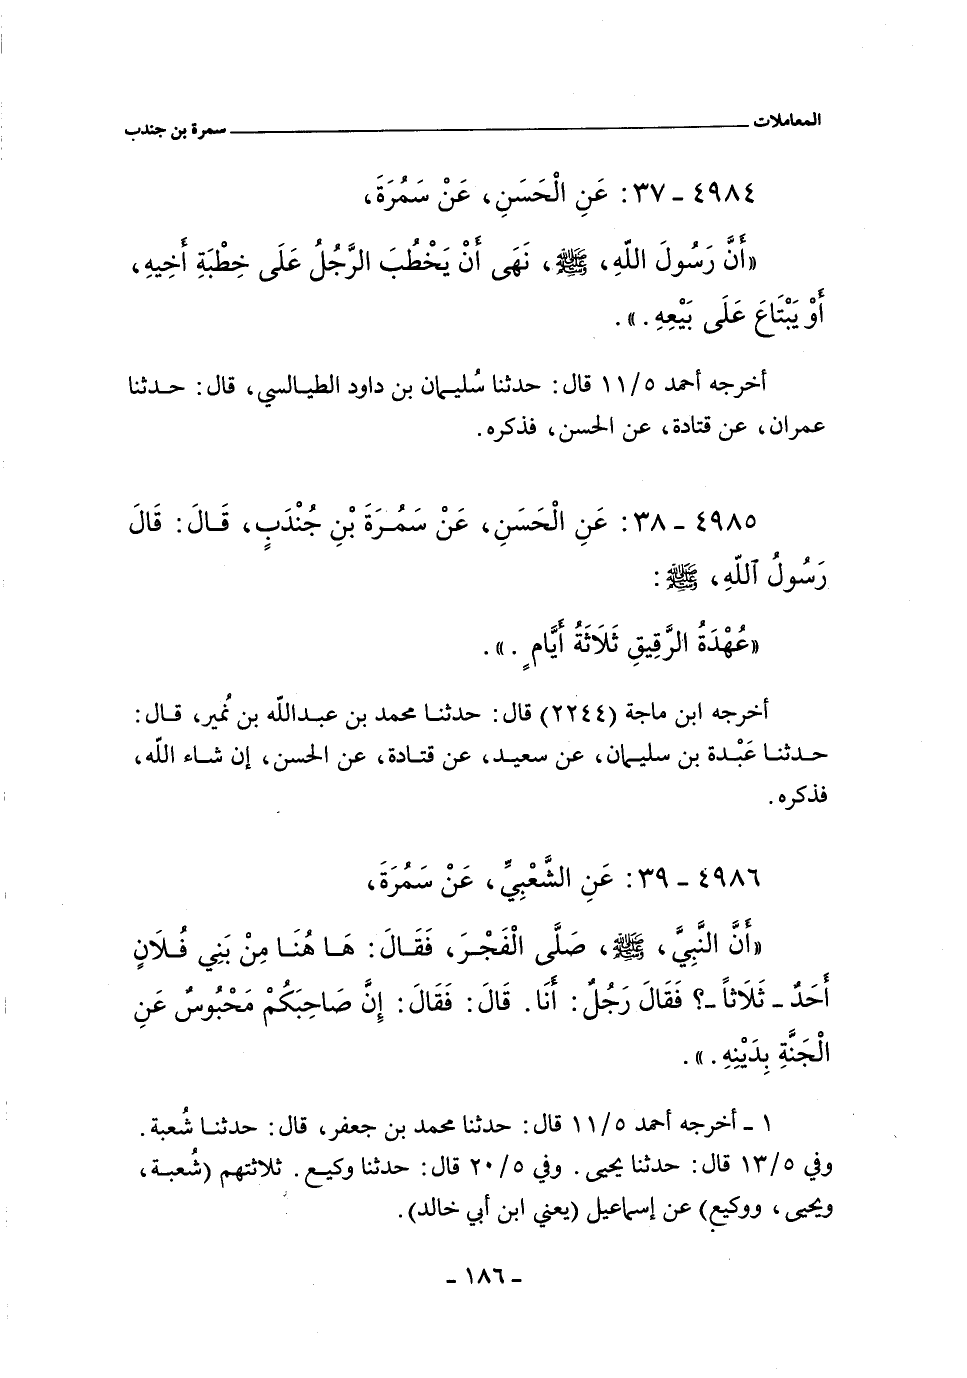 المعاملات ــــــــــ سمرة بن جندب
٤٩٨٤ - ٣٧: عَنِ الْحَسَنِ، عَنْ سَمُرَةَ،
«أَنَّ رَسُولَ اللهِ، ﷺ، نَهَى أَنْ يَخْطُبَ الرَّجُلُ عَلَى خِطْبَةِ أَخِيهِ،
أَوْ يَبْتَاعَ عَلَى بَيْعِهِ.».
أخرجه أحمد ١١/٥ قال: حدثنا سُليمان بن داود الطيالسي، قال: حدثنا
عمران، عن قتادة، عن الحسن، فذكره.
٤٩٨٥ - ٣٨: عَنِ الْحَسَنِ، عَنْ سَمُرَةَ بْنِ جُنْدَبٍ، قَالَ: قَالَ
رَسُولُ اللهِ، ﷺ:
«عُهْدَةُ الرَّقِيقِ ثَلَاثَةُ أَيَّامٍ.».
أخرجه ابن ماجة (٢٢٤٤) قال: حدثنا محمد بن عبدالله بن نُمير، قال:
حدثنا عَبْدة بن سليمان، عن سعيد، عن قتادة، عن الحسن، إن شاء الله،
فذكره.
٤٩٨٦ - ٣٩: عَنِ الشَّعْبِيِّ، عَنْ سَمُرَةَ،
«أَنَّ النَّبِيَّ، ﷺ، صَلَّى الْفَجْرَ، فَقَالَ: هَا هُنَا مِنْ بَنِي فُلَانٍ
أَحَدٌ - ثَلَاثاً -؟ فَقَالَ رَجُلٌ: أَنَا. قَالَ: فَقَالَ: إِنَّ صَاحِبَكُمْ مَحْبُوسٌ عَنِ
الْجَنَّةِ بِدَيْنِهِ.».
١ - أخرجه أحمد ١١/٥ قال: حدثنا محمد بن جعفر، قال: حدثنا شُعبة.
وفي ١٣/٥ قال: حدثنا يحيى. وفي ٢٠/٥ قال: حدثنا وكيع. ثلاثتهم (شُعبة،
ويحيى، ووكيع) عن إسماعيل (يعني ابن أبي خالد).
- ١٨٦ -